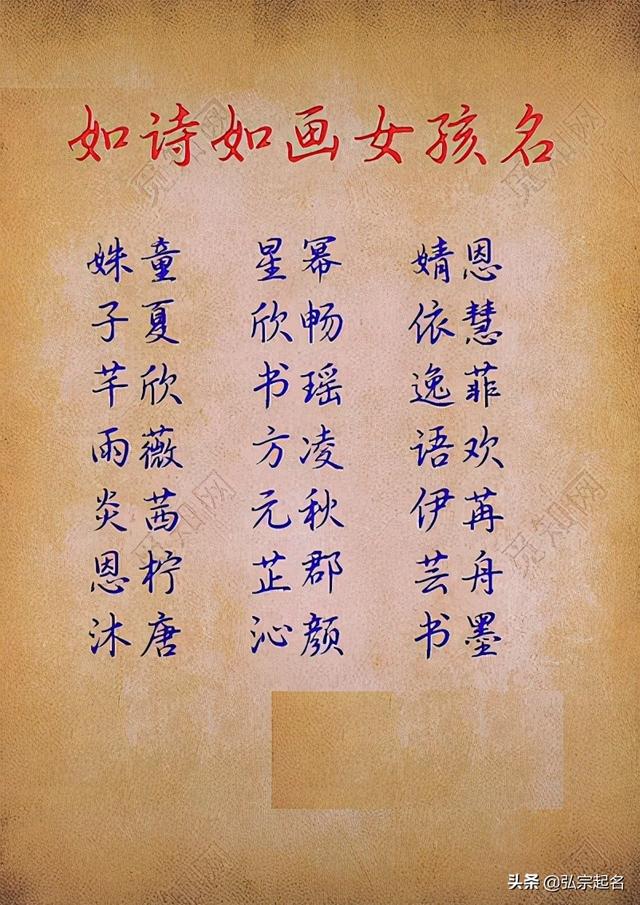 如诗如画女孩名
姝童 星幂 婧恩
子夏 欣畅 依慧
芊欣 书瑶 逸菲
雨薇 方凌 语欢
炎茜 元秋 伊苒
恩柠 芷郡 芸舟
沐唐 沁颜 书墨
觅知网
觅知网
觅知网
觅知网
头条 @弘宗起名